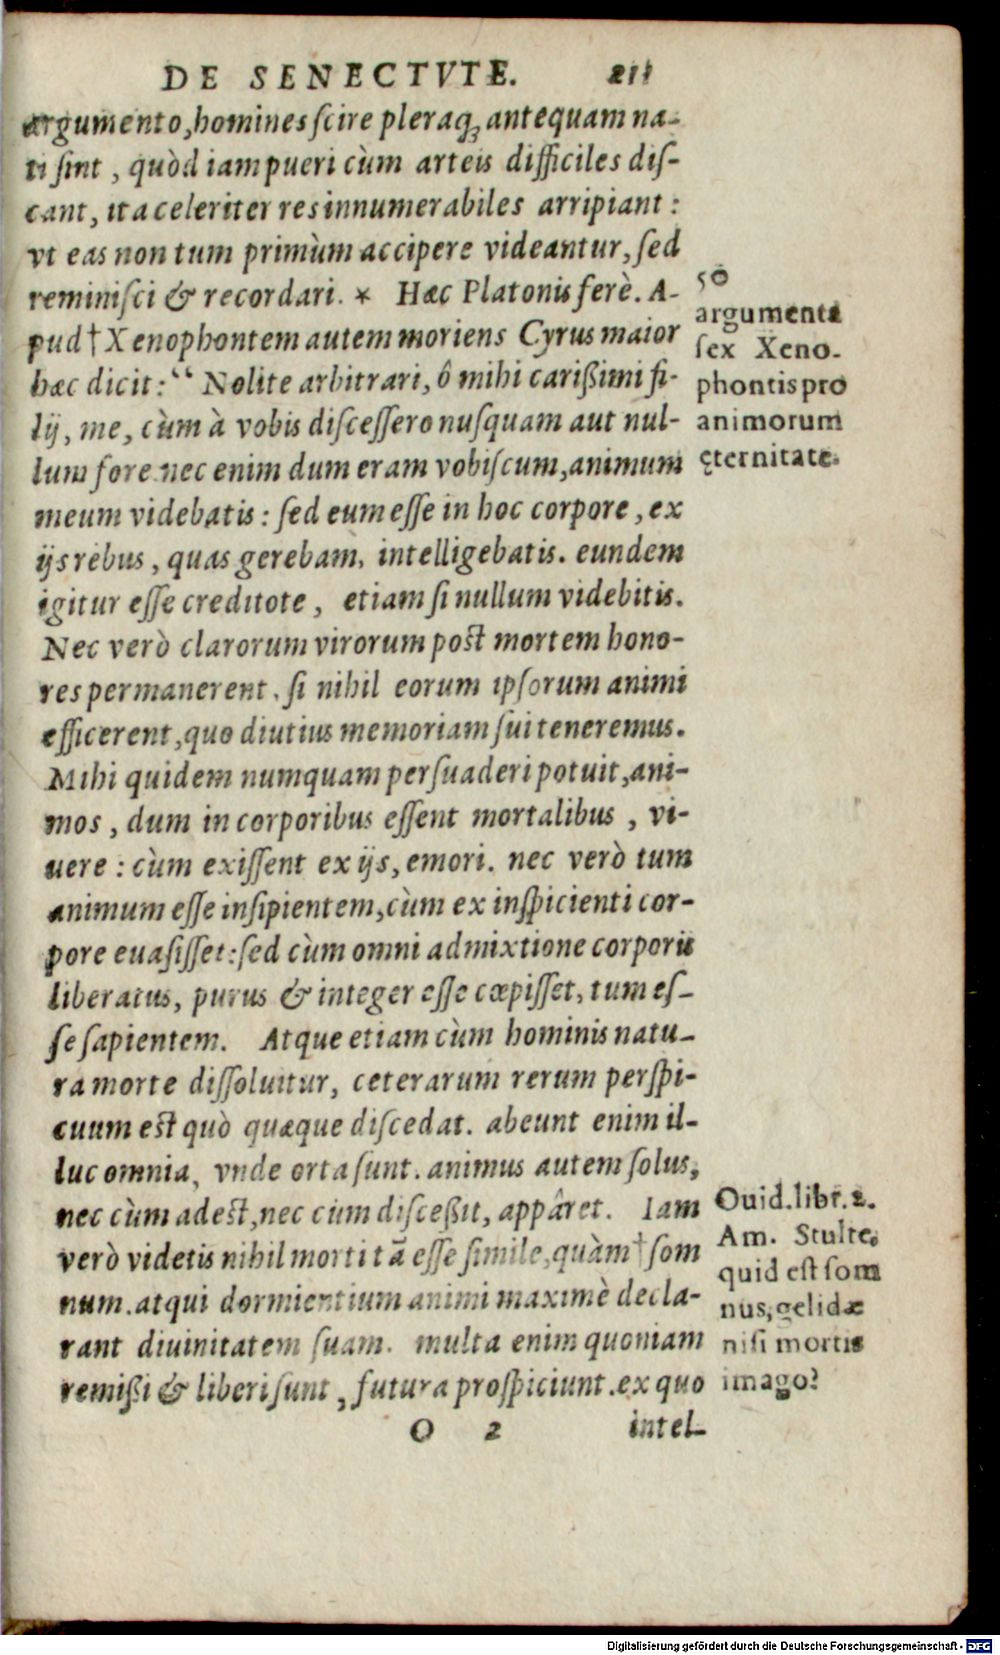 DE SENECTVTE. 211
argumento, homines scire pleraq; antequam na-
ti sint, quòd iam pueri cùm arteis difficiles dis-
cant, ita celeriter res innumerabiles arripiant:
vt eas non tum primùm accipere videantur, sed
reminisci & recordari. * Hæc Platonis ferè. A-
pud † Xenophontem autem moriens Cyrus maior
hæc dicit: “ Nolite arbitrari, ô mihi carißimi fi-
lij, me, cùm à vobis discessero nusquam aut nul-
lum fore. nec enim dum eram vobiscum, animum
meum videbatis: sed eum esse in hoc corpore, ex
ijs rebus, quas gerebam, intelligebatis. eundem
igitur esse creditote, etiam si nullum videbitis.
Nec verò clarorum virorum post mortem hono-
res permanerent, si nihil eorum ipsorum animi
efficerent, quo diutius memoriam sui teneremus.
Mihi quidem numquam persuaderi potuit, ani-
mos, dum in corporibus essent mortalibus, vi-
uere: cùm exissent ex ijs, emori. nec verò tum
animum esse insipientem, cùm ex inspicienti cor-
pore euasisset: sed cùm omni admixtione corporis
liberatus, purus & integer esse cœpisset, tum es-
se sapientem. Atque etiam cùm hominis natu-
ra morte dissoluitur, ceterarum rerum perspi-
cuum est quò quæque discedat. abeunt enim il-
luc omnia, vnde orta sunt. animus autem solus,
nec cùm adest, nec cùm disceßit, appâret. Iam
verò videtis nihil morti tã esse simile, quàm † som
num. atqui dormientium animi maximè decla-
rant diuinitatem suam. multa enim quoniam
remißi & liberi sunt, futura prospiciunt. ex quo
O 2 intel-
50
argumenta
sex Xeno-
phontis pro
animorum
ęternitate.
Ouid. libr. 2.
Am. Stulte,
quid est som
nus, gelidæ
nisi mortis
imago?
Digitalisierung gefördert durch die Deutsche Forschungsgemeinschaft - DFG